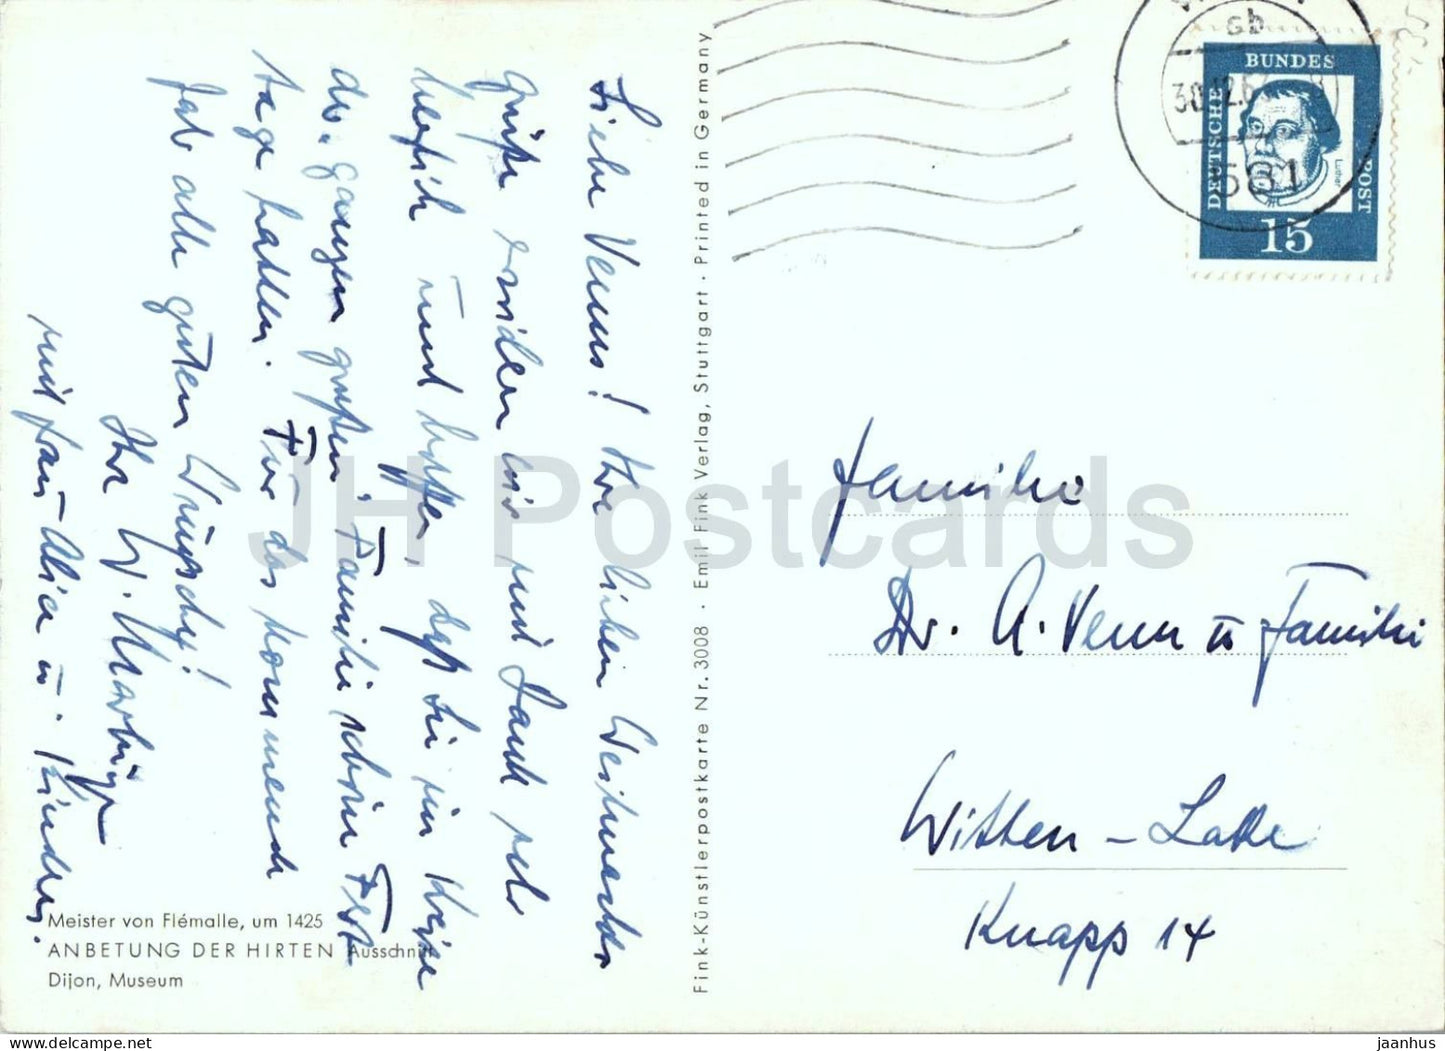 Liebe Venns! Ihre lieben Weihnachts
grüße erwidern wir mit Dank sehr
herzlich und hoffen, daß Sie im Kreise
der ganzen großen Familie schöne Fest
tage hatten. Für das kommende
Jahr alle guten Wünsche!
Ihr
mit Frau u. Kindern.
Meister von Flémalle, um 1425
ANBETUNG DER HIRTEN Ausschnitt
Dijon, Museum
Fink-Künstlerpostkarte Nr. 3008 · Emil Fink Verlag, Stuttgart · Printed in Germany
DEUTSCHE BUNDES POST
Luther
15
581
Familie
Dr. A. Venn u Familie
Witten - Laake
Knapp 14
JH Postcards
www.delcampe.net
jaanhus